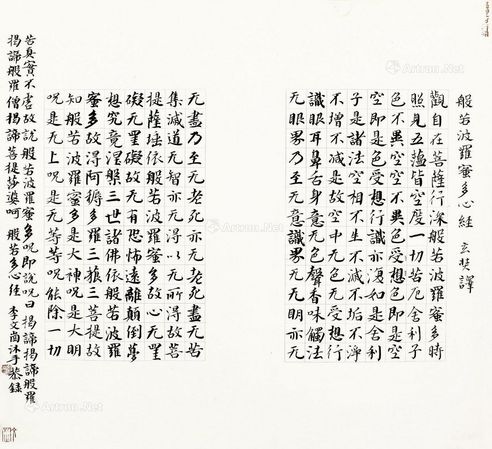 般若波羅蜜多心經 玄奘譯
觀自在菩薩行深般若波羅蜜多時
照見五蘊皆空度一切苦厄舍利子
色不異空空不異色受想色即是空
空即是色受想行識亦復如是舍利
子是諸法空相不生不滅不垢不淨
不增不减是故空中无色无受想行
識眼耳鼻舌身意无色聲香味觸法
无眼界乃至无意識界无无明亦无
无盡乃至无老死亦无老死盡无苦
集滅道无智亦无得以无所得故菩
提薩埵依般若波羅蜜多故心无罣
礙无罣礙故无有恐怖遠離顛倒夢
想究竟涅槃三世諸佛依般若波羅
蜜多故得阿耨多羅三藐三菩提故
知般若波羅蜜多是大神呪是大明
呪是无上呪是无等等呪能除一切
苦真實不虛故說般若波羅蜜多呪即說呪曰揭諦揭諦般羅
揭諦般羅僧揭諦菩提莎婆呵 般若多心經 李文尚沐手恭錄
Artron.Net
Artron.Net
Artron.Net
Artron.Net
Artron.Net